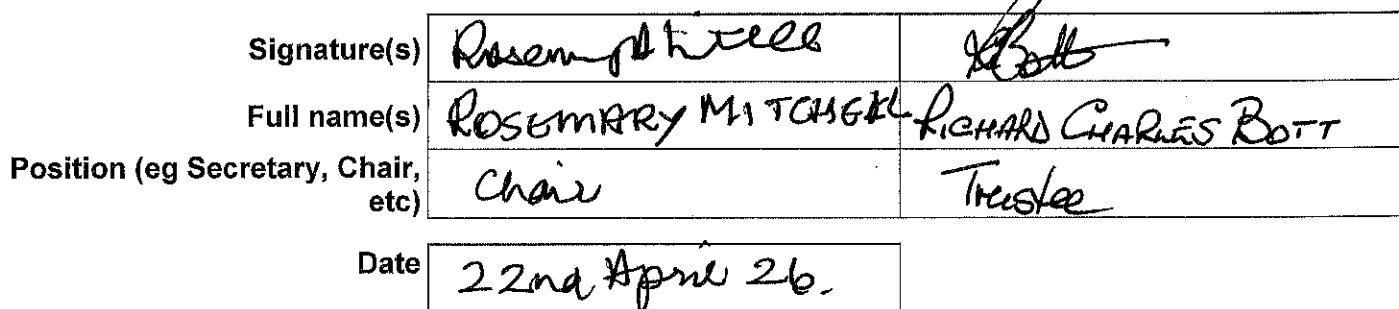 Signature(s) Rosemary Mitchell RCBott
Full name(s) ROSEMARY MITCHELL RICHARD CHARLES BOTT
Position (eg Secretary, Chair,
etc) Chair Trustee
Date 22nd April 26.